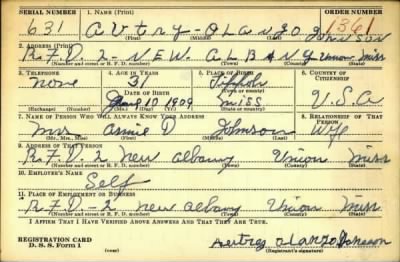 SERIAL NUMBER 1. NAME (Print) ORDER NUMBER
631 Autry Olanzo Johnson 1361
(First) (Middle) (Last)
2. ADDRESS (Print)
R.F.D. 2 NEW ALBANY Union Miss
(Number and street or R. F. D. number) (Town) (County) (State)
3. TELEPHONE 4. AGE IN YEARS 5. PLACE OF BIRTH 6. COUNTRY OF CITIZENSHIP
non 31 Tippah
DATE OF BIRTH (Town or county)
10 1909 Miss U.S.A
(Exchange) (Number) (Mo.) (Day) (Yr.) (State or country)
7. NAME OF PERSON WHO WILL ALWAYS KNOW YOUR ADDRESS 8. RELATIONSHIP OF THAT PERSON
Mrs. Annie D Johnson Wife
(Mr., Mrs., Miss) (First) (Middle) (Last)
9. ADDRESS OF THAT PERSON
R.F.D-2 new albany Union Miss
(Number and street or R. F. D. number) (Town) (County) (State)
10. EMPLOYER'S NAME
Self
11. PLACE OF EMPLOYMENT OR BUSINESS
R.F.D-2 new albany Union Miss
(Number and street or R. F. D. number) (Town) (County) (State)
I AFFIRM THAT I HAVE VERIFIED ABOVE ANSWERS AND THAT THEY ARE TRUE.
REGISTRATION CARD
D. S. S. FORM 1 Johnson
(Registrant's signature)